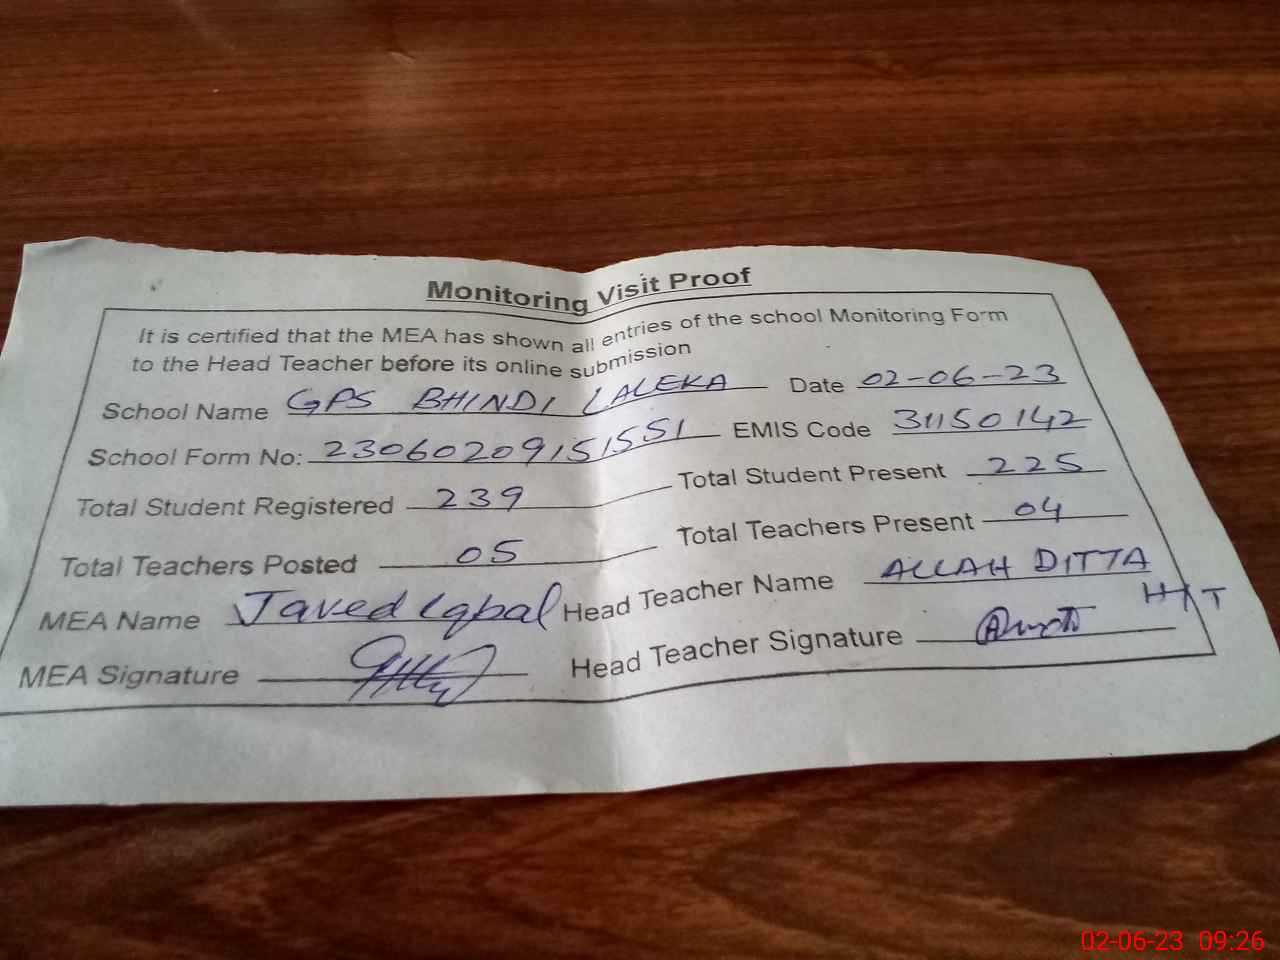 Monitoring Visit Proof
It is certified that the MEA has shown all entries of the school Monitoring Form
to the Head Teacher before its online submission
School Name GPS BHINDI LALEKA Date 02-06-23
School Form No: 23060209151551 EMIS Code 31150142
Total Student Registered 239 Total Student Present 225
Total Teachers Posted 05 Total Teachers Present 04
MEA Name Javed Iqbal Head Teacher Name ALLAH DITTA
H/T
MEA Signature Head Teacher Signature
02-06-23 09:26